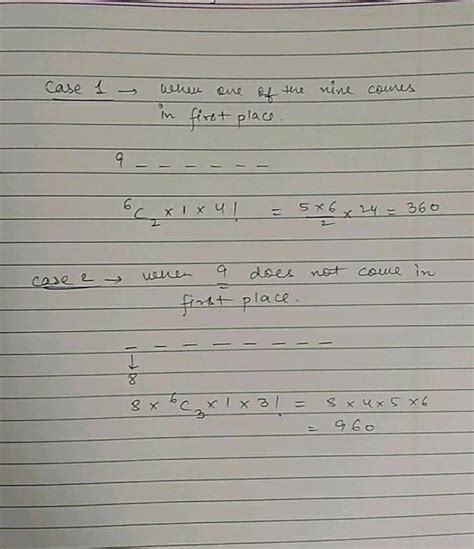 Case 1 → when one of the nine comes
in first place.
9 _ _ _ _ _ _
⁶C₂ × 1 × 4! = 5×6/2 × 24 = 360
case 2 → when 9 does not come in
first place.
_ _ _ _ _ _ _ _
↓
8
8 × ⁶C₃ × 1 × 3! = 8 × 4 × 5 × 6
= 960